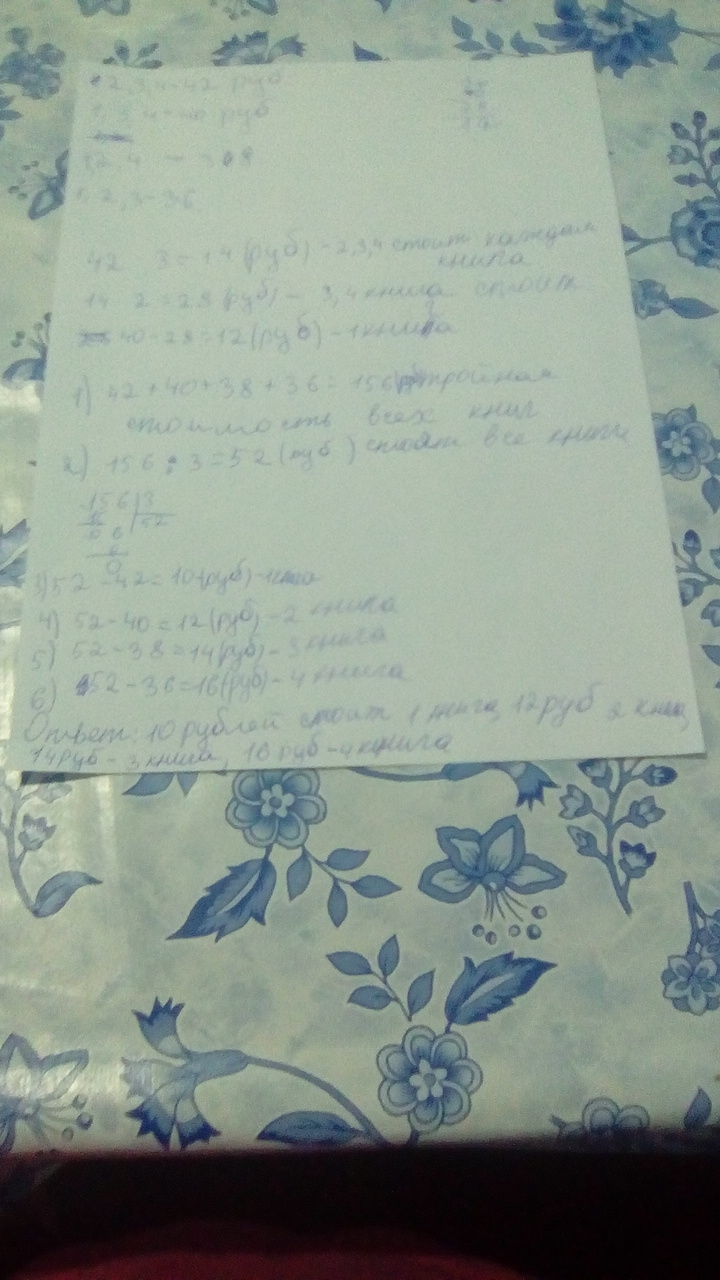 2,3,4-42 руб
1,3,4-40 руб
1,2,4 - 38
1,2,3-36
42 3=14(руб)-2,3,4 стоит каждая
книга
14 2=28(руб)- 3,4 книга стоит
40-28=12(руб)-1 книга
1) 42+40+38+36=156 тройная
стоимость всех книг
2) 156:3=52(руб) стоят все книги
156|3
15 52
06
6
0
3) 52-42=10(руб)-1
4) 52-40=12(руб)-2 книга
5) 52-38=14(руб)-3 книга
6) 52-36=16(руб)-4 книга
Ответ: 10 рублей стоит 1 книга, 12 руб 2
14 руб - 3 книга, 16 руб-4 книга